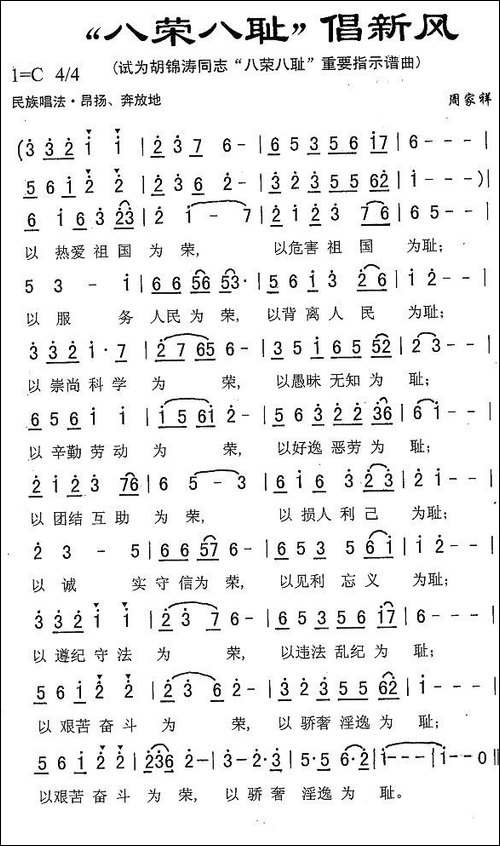 “八荣八耻”倡新风
(试为胡锦涛同志“八荣八耻”重要指示谱曲)
1=C 4/4
民族唱法·昂扬、奔放地
周家祥
(3 3 2 1 1 | 2 3 7 6 - | 6 5 3 5 6 17 | 6 - - - |
5 6 1 2 2 | 2 3 6 2 - | 3 2 3 5 5 62 | 1 - - - )|
6 1 6 3 23 | 2 1 - 7 | 2 1 2 3 7 6 | 6 5 - - |
以 热爱 祖 国 为 荣, 以危害 祖 国 为耻;
5 3 - 1 | 6 6 56 53· | 5 6 1 3 2 6 | 1 2 - - |
以 服 务 人民 为 荣, 以背 离 人 民 为耻;
3 3 2 1 · 7 | 2 7 65 6 - | 3 5 1 6 5 52 | 2 3 - - |
以 崇尚 科 学 为 荣, 以愚昧 无知 为 耻;
6 5 6 1 1 | 1 5 61 2 - | 5 6 3 2 2 36 | 6 - - - |
以 辛勤 劳 动 为 荣, 以好逸 恶劳 为 耻;
2 1 2 3 76 | 6 5 - 3 | 1 6 1 6 3 2 3 | 2 2 - - |
以 团结 互 助 为 荣, 以 损人 利 己 为耻;
2 3 - 5 | 6 6 57 6 - | 6 5 3 5 6 1 | 1 2 - - |
以 诚 实 守 信为 荣, 以见利 忘 义 为耻;
3 3 2 1 1 | 2 3 7 6 - | 6 5 3 5 6 17 | 6 - - - |
以 遵纪 守 法 为 荣, 以违法 乱纪 为 耻;
5 6 1 2 2 | 2 3 6 2 - | 3 2 3 5 5 62 | 1 - - - |
以 艰苦 奋 斗 为 荣, 以 骄奢 淫逸 为 耻;
5 6 1 2 2 | 236 2 - | 3 - 2·3 | 5·5 6·2 | 1 - - - | 1 - - 0 ‖
以艰苦 奋 斗 为 荣, 以 骄 奢 淫逸 为 耻。